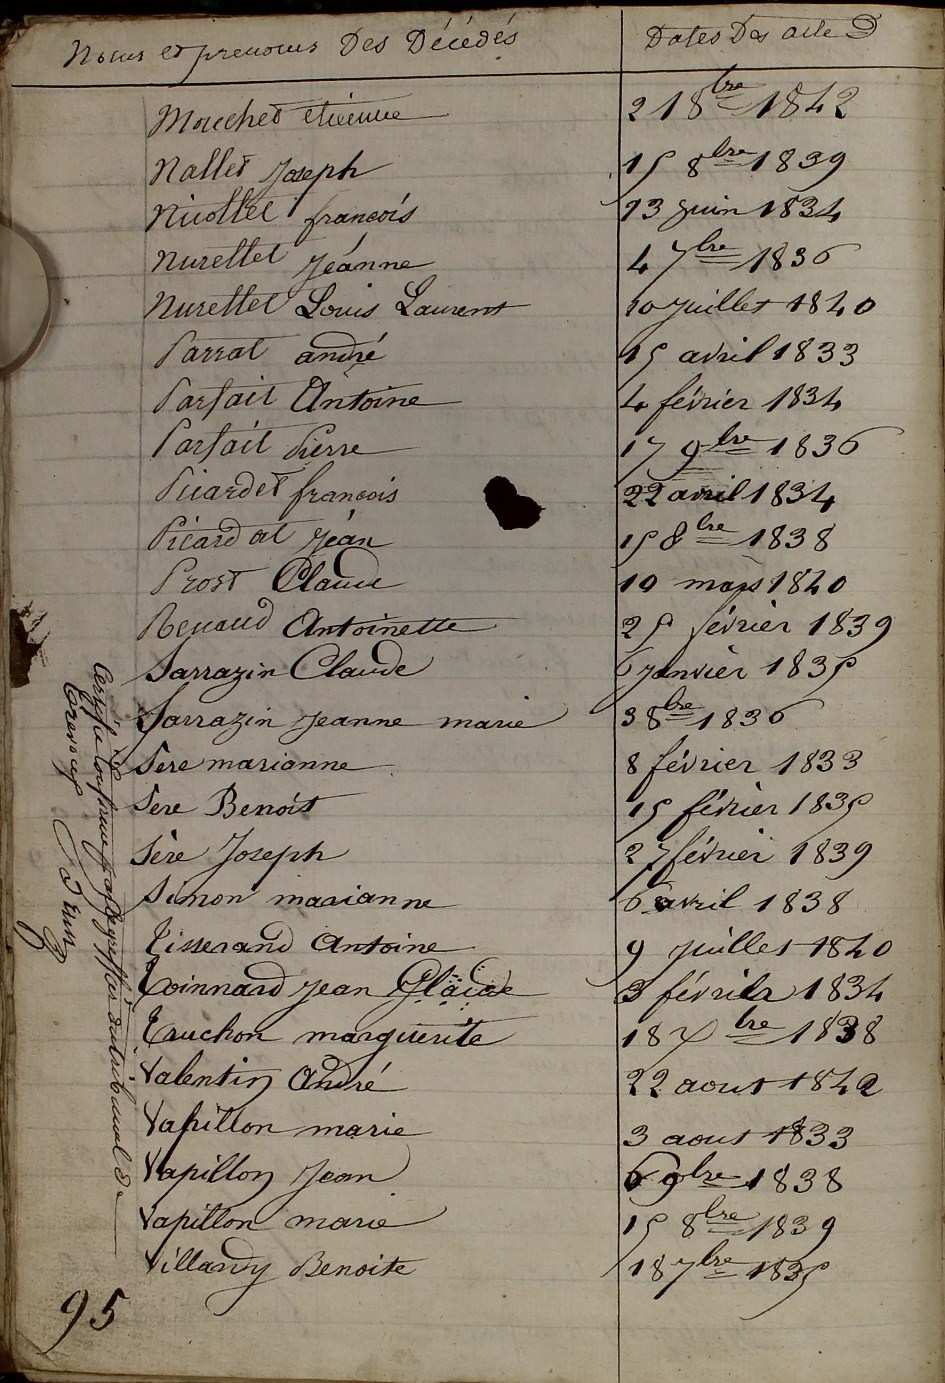 Noms et prenoms Des Décédés Dates Des actes
Mouchet etienne 21 8bre 1842
Nallet Joseph 15 8bre 1839
Nicollet françois 13 juin 1834
Nurettet Jeánne 4 7bre 1836
Nurettet Louis Laurent 10 juillet 1840
Parrat andré 15 avril 1833
Parfait Antoine 4 février 1834
Parfait Pierre 17 9bre 1836
Picardet françois 22 avril 1834
Picardat Jéan 15 8bre 1838
Prost Claude 10 mars 1840
Renaud Antoinette 25 février 1839
Sarrazin Claude 6 janvier 1835
Sarrazin Jeanne marie 3 8bre 1836
Sere marianne 8 février 1833
Sere Benoit 15 février 1835
Sère Joseph 27 février 1839
Simon marianne 6 avril 1838
Tisserand Antoine 9 juillet 1840
Toinnard Jean Claude 3 février 1834
Truchon marguerite 18 7bre 1838
Valentin André 22 aout 1842
Vapillon marie 3 aout 1833
Vapillon Jean 6 9bre 1838
Vapillon marie 15 8bre 1839
Villardy Benoite 18 7bre 1835
Certifié conforme par le greffier du tribunal de
Trevoux
95